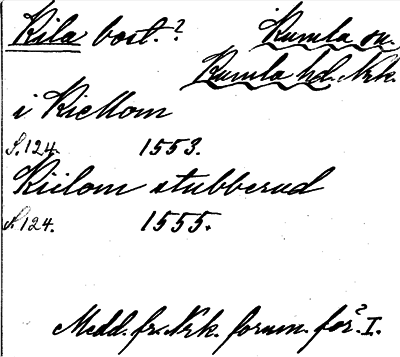 Kila bost.? Kumla sn.
Kumla hd. Nrk.
i Kiellom
S. 124. 1553.
Kiilom stubberud
S. 124. 1555.
Medd. fr. Nrk. fornm. för? I.